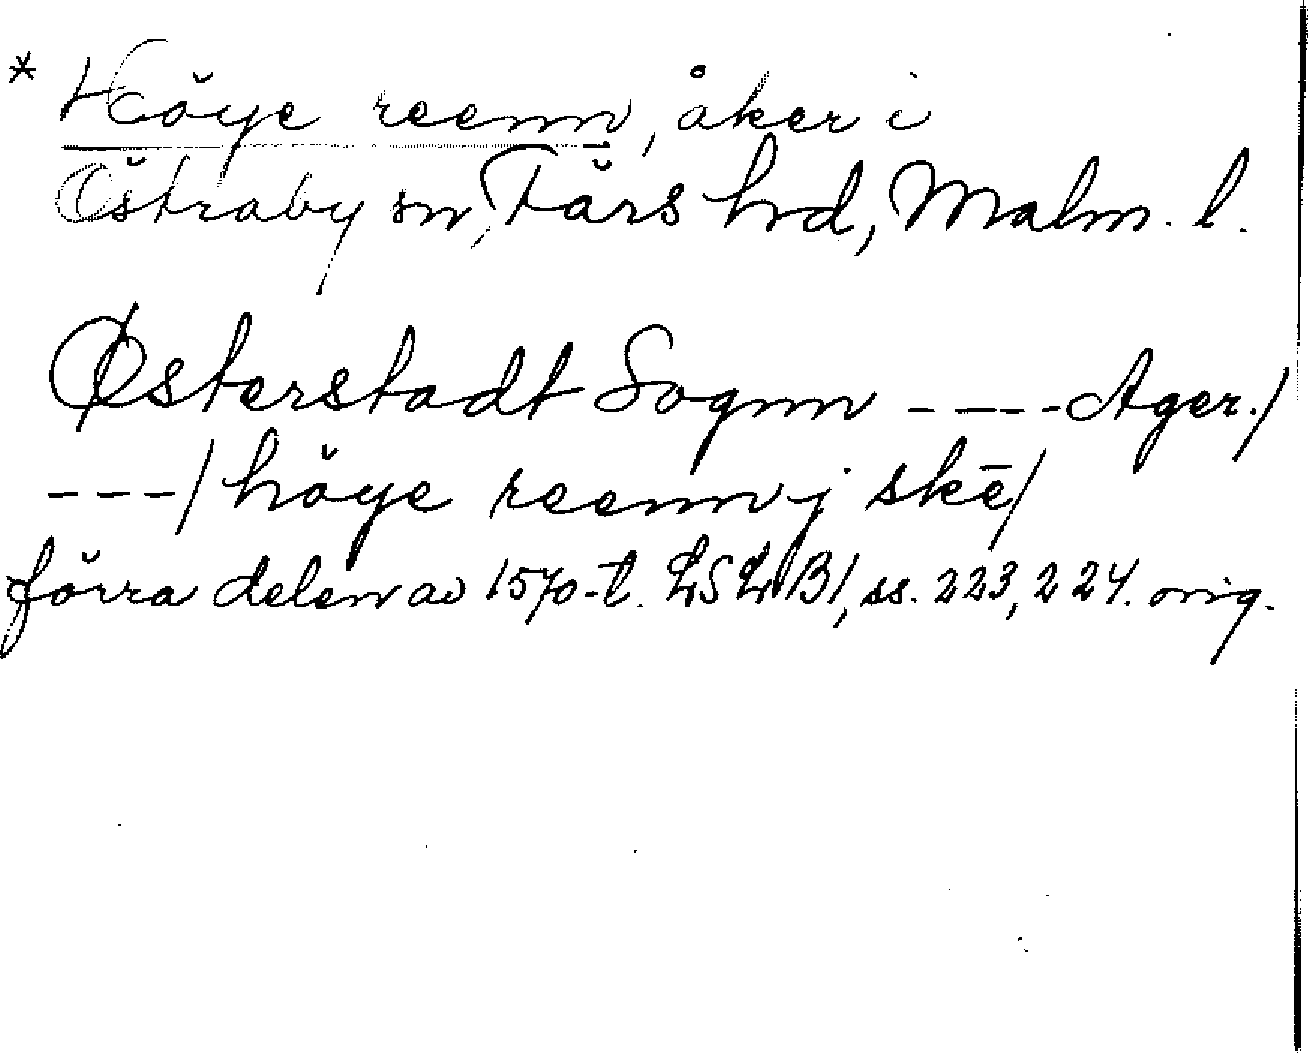 * Höye reenn, åker i
Östraby sn, Färs hrd, Malm. l.
Østerstadt Sognn ---- Ager./
---/ höye reenn j skē/
förra delen av 1570-t. LSLB1, ss. 223, 224. orig.